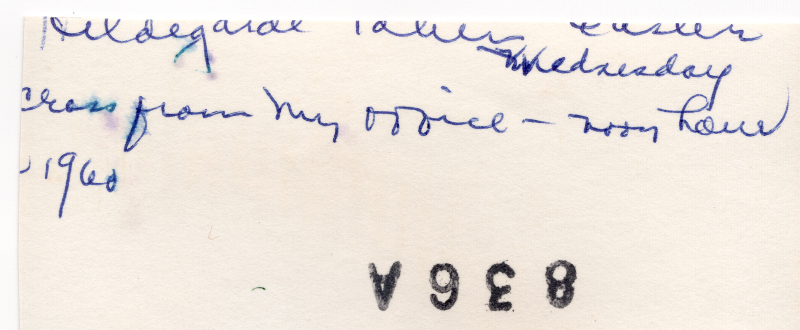 Hildegarde Taken Easter
Wednesday
cross from my office – noon hour
1960
836A